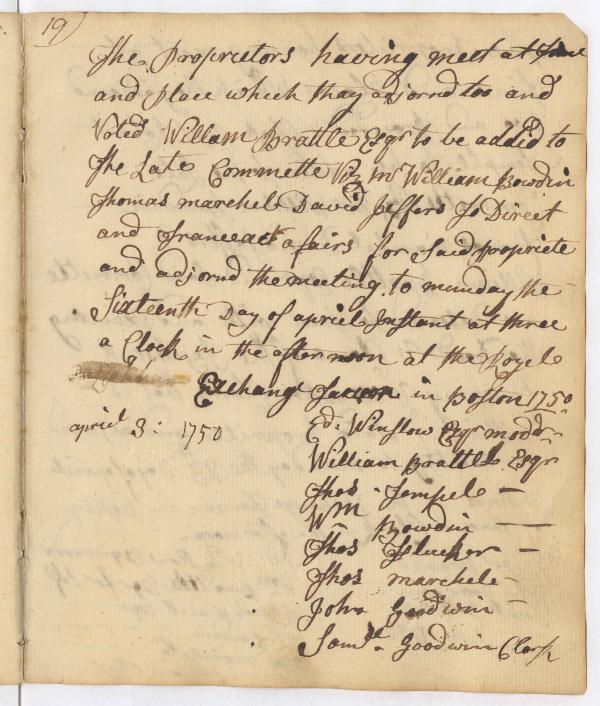 19
The Proprietors having meet at time
and place which thay adjorned too and
Voted William Brattle Esqr to be added to
The Late Commette Viz Mr William Bowdin
Thomas marchel David Jeffers To Direct
and Tranceact afairs for Said propriete
and adjornd the meeting to munday the
Sixteenth Day of apriel Instant at three
a Clock in the afternoon at the Royel
Exchang Tavern in Boston 1750
apriel 3: 1750
Ed: Winslow Esqr modr
William Brattle Esqr
Thos Tempel
Wm Bowdin
Thos Flucker
Thos marchel
John Goodwin
Saml Goodwin Clark